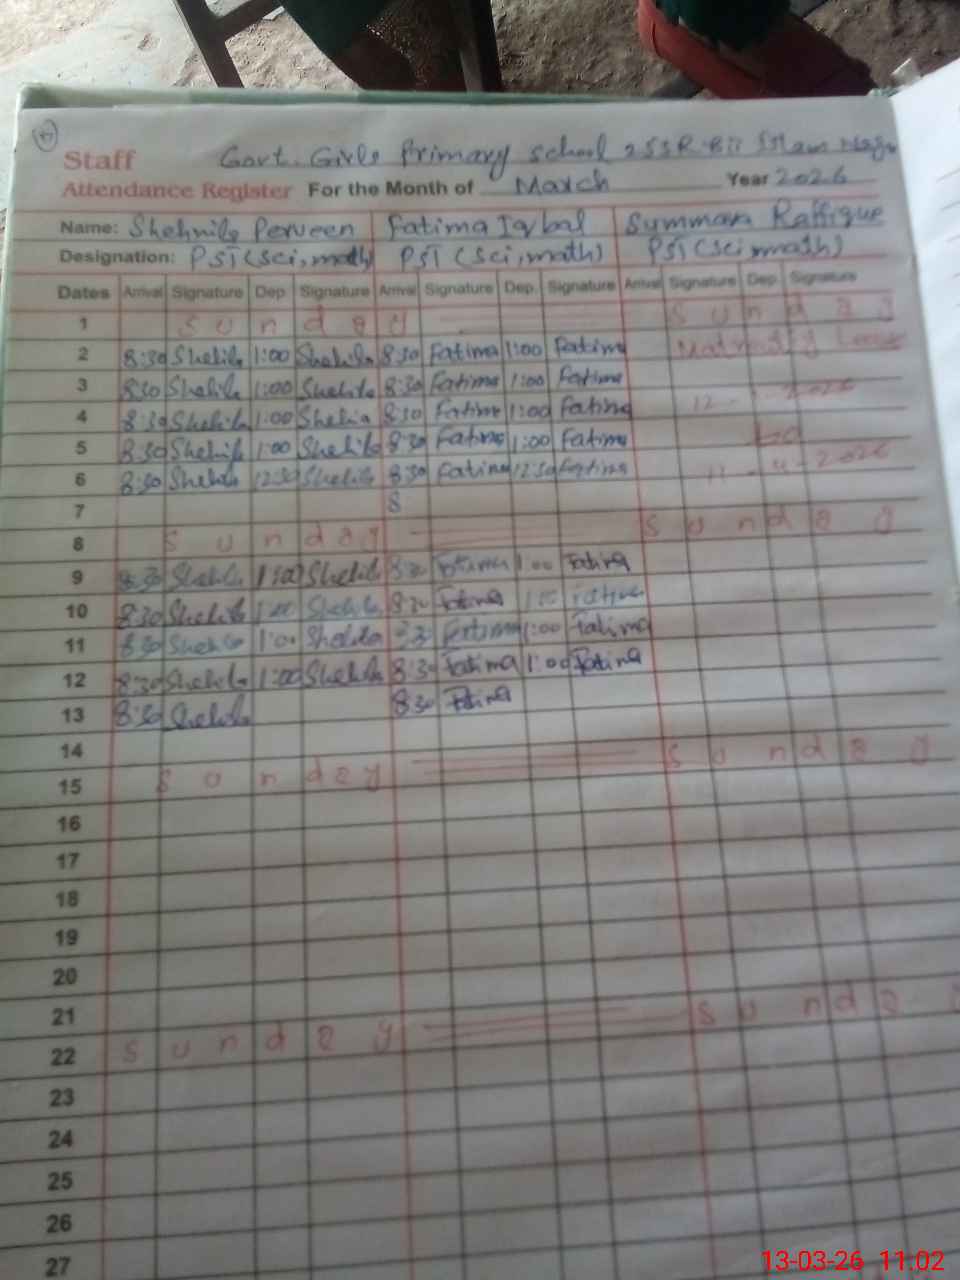 Staff Govt. Girls Primary School
Attendance Register For the Month of March Year 2026
Name: Shehnila Perveen Fatima Iqbal Summara Raffique
Designation: PST (Sci, math) PST (Sci, math) PST (Sci, math)
Dates Arrival Signature Dep. Signature Arrival Signature Dep. Signature Arrival Signature Dep. Signature
1 Sunday Sunday
2 8:30 Shehila 1:00 Shehila 8:30 Fatima 1:00 Fatima Leave
3 8:30 Shehila 1:00 Shehila 8:30 Fatima 1:00 Fatima 2026
4 8:30 Shehila 1:00 Shehia 8:30 Fatima 1:00 Fatima
5 8:30 Shehila 1:00 Shehila 8:30 Fatima 1:00 Fatima To
6 8:30 Shehila 12:30 Shehila 8:30 Fatima 12:30 Fatima 4-2026
7 8
8 Sunday Sunday
9 8:30 Shehila 1:00 Shehila 8:30 Fatima 1:00 Fatima
10 8:30 Shehila 1:00 Shehila 8:30 Fatima 1:00 Fatima
11 8:30 Shehila 1:00 Shehila 8:30 Fatima 1:00 Fatima
12 8:30 Shehila 1:00 Shehila 8:30 Fatima 1:00 Fatima
13 8:30 Shehila 8:30 Fatima
14
15 Sunday Sunday
16
17
18
19
20
21
22 Sunday Sunday
23
24
25
26
27
13-03-26 11.02